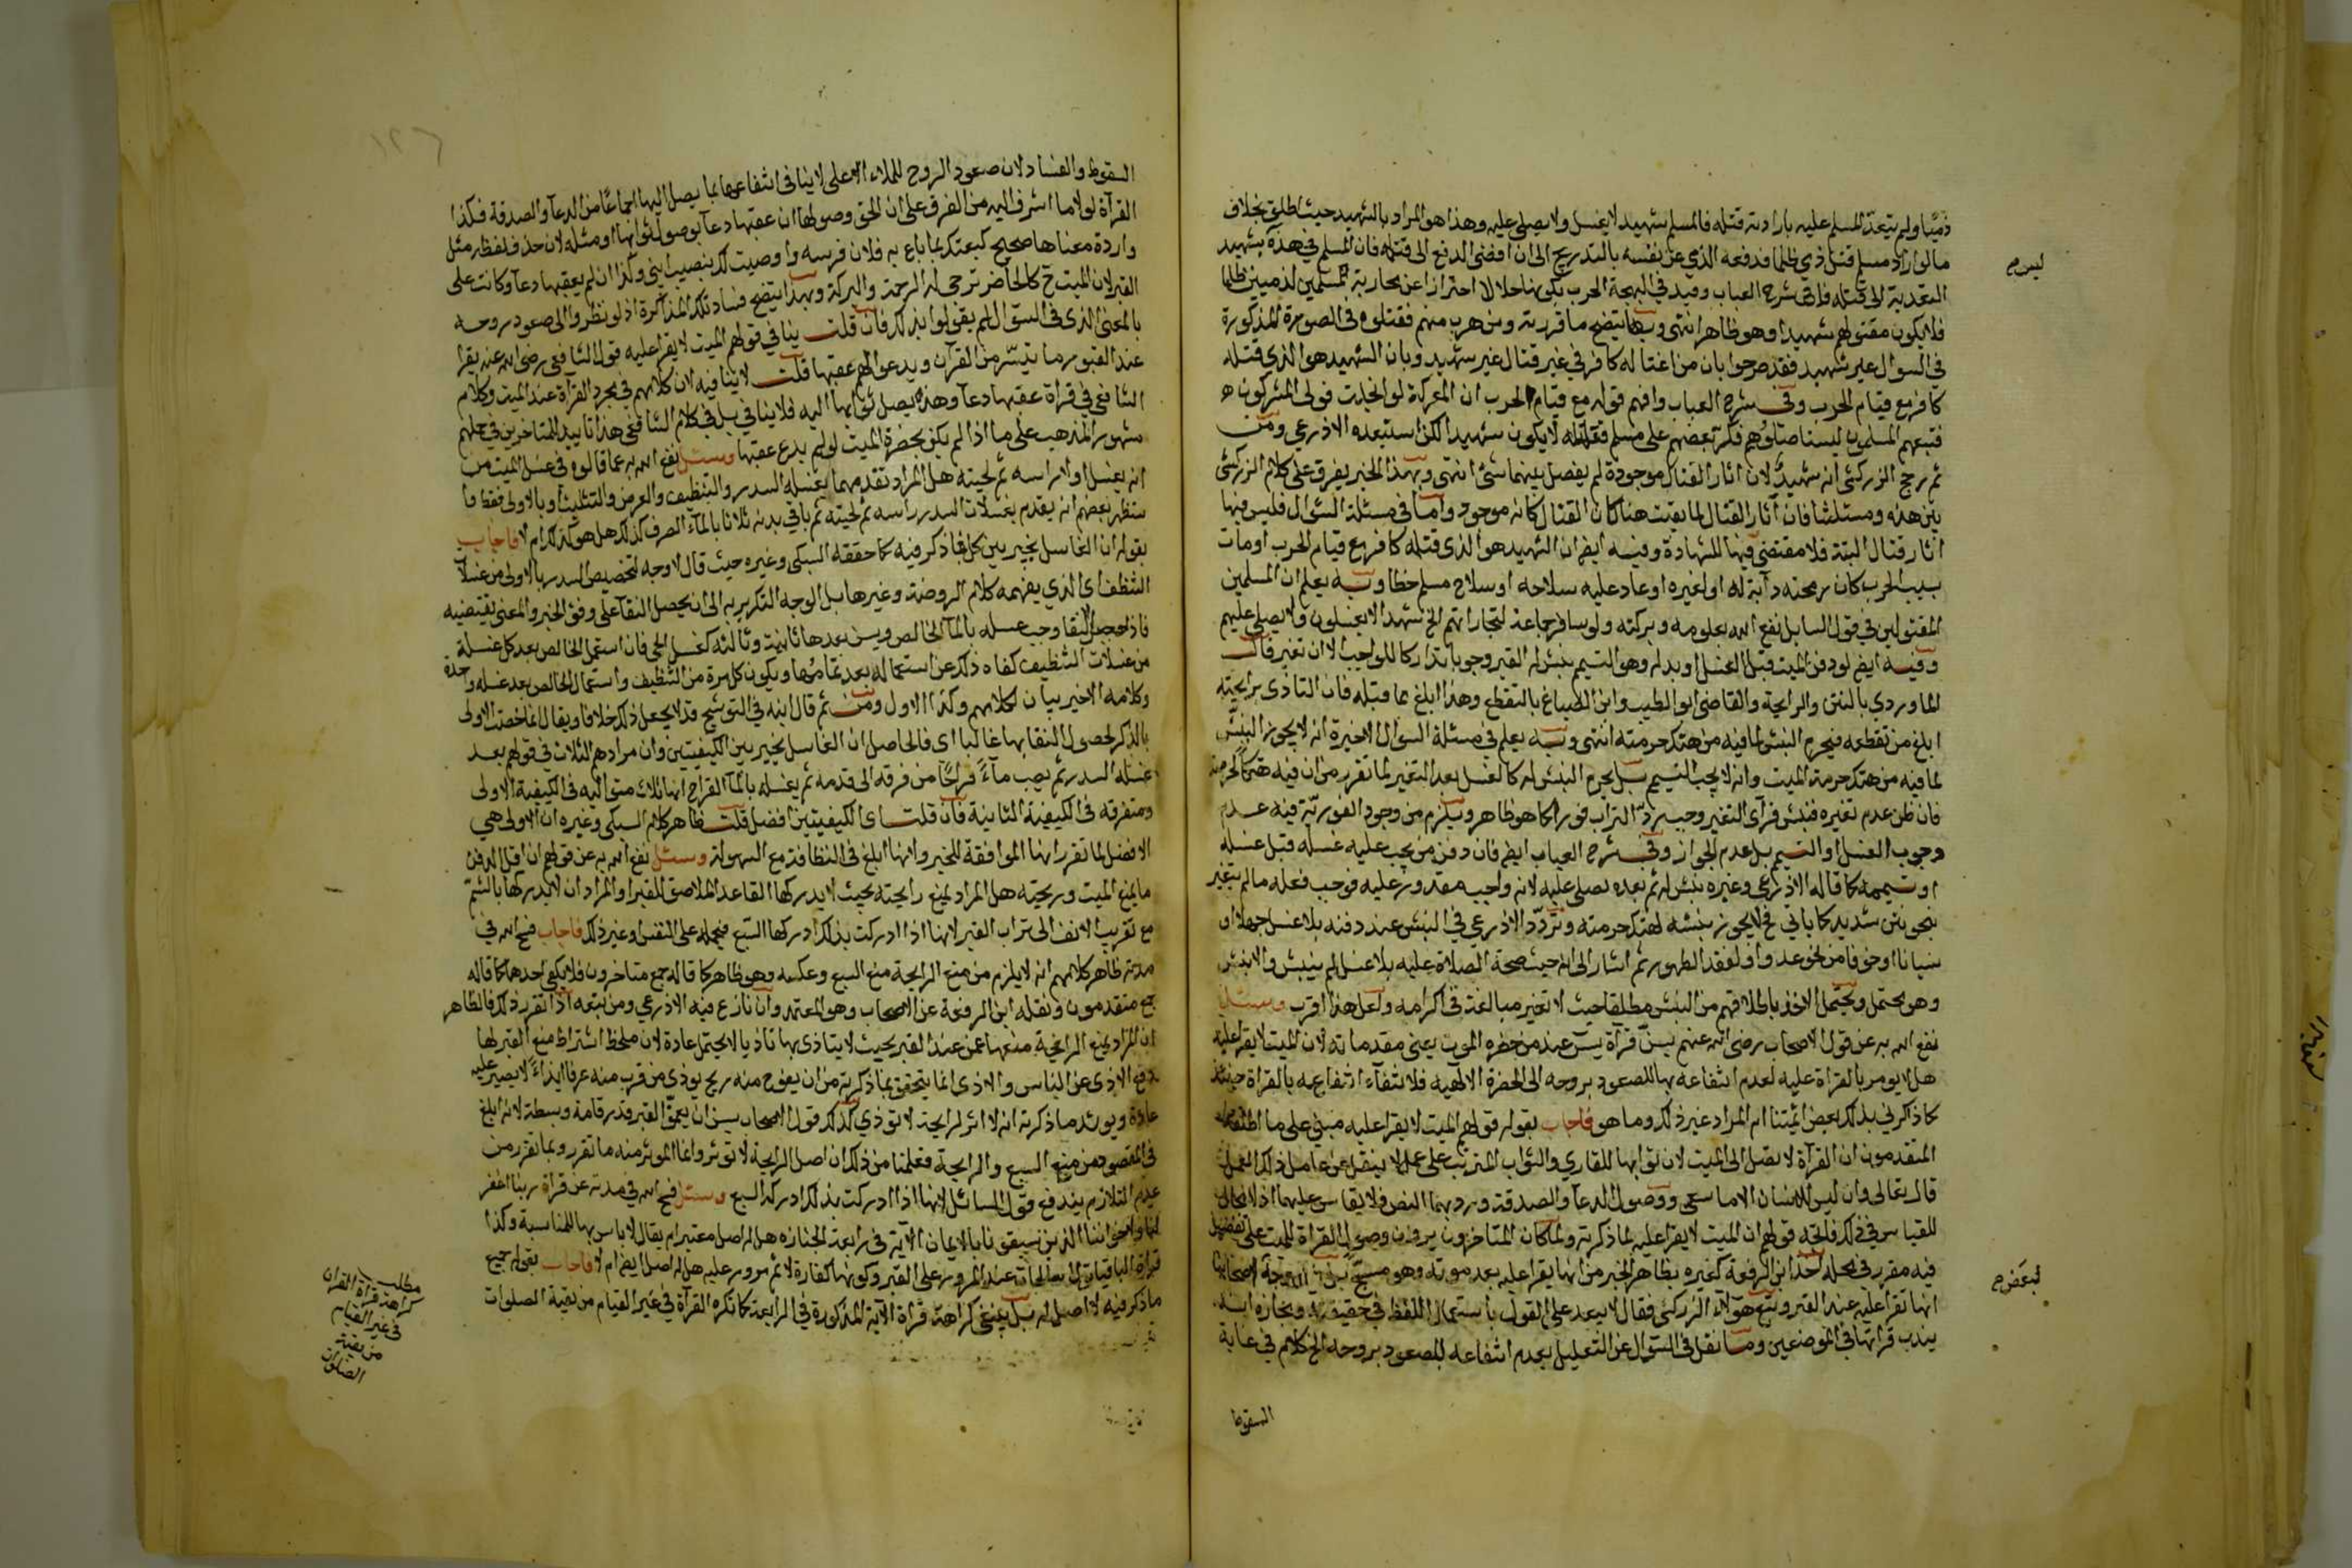 ذميا ولم يتعد المسلم عليه بارادته قتله فالمسلم شهيد لا يغسل ولا يصلى عليه وهذا هو المراد بالشهيد حيث اطلق بخلاف
ما لو اراد مسلم قتل ذمي ظلما فدفعه الذمي عن نفسه بالتدريج الى ان افضى الدفع الى قتله فان المسلم في هذه بشهيد
ليس م
لتعديه الى قتله قال في شرح العباب وقيد في البهجة الحرب بكونها حلالا احترازا عن محاربة مسلمين لذميين ظلما
فلا يكون مقتولهم شهيدا وهو ظاهر انتهى وبهذا يتضح ما قررته ومن هرب منهم فقتلوه في الصورة المذكورة
في السوال غير شهيد فقد صرحوا بان من اغتاله كافر في غير قتال غير شهيد وبان الشهيد هو الذي قتله
كافر مع قيام الحرب وفي شرح العباب وافهم قوله مع قيام الحرب ان المعركة لو انجلت فولى المشركون
فتبعهم المسلمون ليستاصلوهم فكر بعضهم على مسلم فقتله لا يكون شهيدا لكن استبعده الاذرعي ومن
ثم رجح الزركشي انه شهيد لان اثار القتال موجودة لم يفصل بينهما شئ انتهى وبهذا الخبر يفرق على كلام الزركشي
بين هذه ومسئلتنا فان آثار القتال لما بقيت هنا كان القتال كانه موجود واما في مسئلة السؤال فليس فيها
اثار قتال البتة فلا مقتضى فيها للشهادة وفيه ايضا ان الشهيد هو الذي قتله كافر مع قيام الحرب او مات
بسبب الحرب كان رمحته دابة له او لغيره او عاد عليه سلاحه او سلاح مسلم خطا وبه يعلم ان المسلمين
المقتولين في قول السايل نفع الله بعلومه وبركته ولو سافر جماعة لتجاراتهم الخ شهدا لا يغسلون ولا يصلى عليهم
وفيه ايضا لو دفن الميت قبل الغسل او بدله وهو التيمم ينبش له القبر وجوبا تداركا للواجب الا ان تغير قال
الماوردي بالنتن والرايحة والقاضي ابو الطيب وابن الصباغ بالتقطع وهذا ابلغ مما قبله فان التاذي برايحته
ابلغ من تقطعه فيحرم النبش لما فيه من هتك حرمته انتهى وبه يعلم في مسئلة السوال الاخيرة انه لا يجوز النبش
لما فيه من هتك حرمة الميت وانه لا يجب التيمم بل يحرم النبش له كالغسل بعد التغير لما تقرر من ان فيه هتكا لحرمته
فان ظن عدم تغيره فنبش فرآى التغير وجب رد التراب فورا كما هو ظاهر ويلزم من وجود الفورية فيه عدم
وجوب الغسل او التيمم بل عدم الجواز وفي شرح العباب ايضا فان دفن من يجب عليه غسله قبل غسله
او تيممه كما قاله الاذرعي وغيره ينبش له ثم بعده يصلى عليه لانه واجب مقدور عليه فوجب فعله ما لم يتغير
بنحو نتن شديد كما ياتي فح لا يجوز نبشه لهتك حرمته وتردد الاذرعي في النبش عند دفنه بلا غسل جهلا او
نسيانا او خوفا من نحو عدو او لفقد الطهور ثم اشار الى انه حيث صحة الصلاة عليه بلا غسل لم ينبش والا نبش
وهو محتمل ويحتمل الاخذ باطلاقهم من النبش مطلقا حيث لا تغير مبالغة في اكرامه ولعل هذا اقرب وسئل
نفع الله به عن قول الاصحاب رضي الله عنهم يسن قرآة يس عند من حضره الموت يعني مقدماته لان الميت لا يقرا عليه
هل لا يومر بالقراة عليه لعدم انتفاعه بها للصعود بروحه الى الحضرة الالهية فلا انتفاء انتفاعه بالقراة حينئذ
كما ذاكرني بذلك بعض ائمتنا ام المراد غير ذلك وما هو فاجاب بقوله قولهم الميت لا يقرا عليه مبني على ما اطلقه
المتقدمون ان القرآة لا تصل الى الميت لان ثوابها للقاري والثواب المترتب على عمل لا ينقل عن عامل ذلك العمل
قال تعالى وان ليس للانسان الا ما سعى ووصول الدعآ والصدقة ورد بهما النص فلا يقاس عليهما اذ لا مجال
للقياس في ذلك فاتجه قولهم ان الميت لا يقرا عليه لما ذكرته ولما كان المتاخرون يرون وصول القراة للميت على تفصيل
فيه مقرر في محله اخذ ابن الرفعة كغيره بظاهر الخبر من انها يقرا عليه بعد موته وهو مسجى
لبعض م
انها تقرا عليه عند القبر وتبع هؤلاء الزركشي فقال لا يبعد على القول باستعمال اللفظ في حقيقته ومجازه انه
يندب قراتها في الموضعين وما نقل في السؤال عن التعليل بعدم انتفاعه للصعود بروحه الخ كلام في غاية
السقوط
السقوط والفساد لان صعود الروح للملاء الاعلى لا ينافي انتفاعها بما يصل اليها اجماعا من الدعآ والصدقة فكذا
القرآة لولا ما اشرف اليه من الفرق على ان الحق وصولها ان عقبها دعآ بوصول ثوابها او مثله لان حذف لفظ مثل
واردة معناها صحيح كبعتك بما باع به فلان فرسه واوصيت لك بنصيب ابني وكذا ان لم يعقبها دعآ وكانت على
القبر لان الميت ح كالحاضر ترجى له الرحمة والبركة وبهذا يتضح فساد تلك المذاكرة اذ لو نظروا الى صعود روحه
بالمعنى الذي في السؤال لم يقولوا بذلك فان قلت ينافي قولهم الميت لا يقرا عليه قول الشافعي رضي الله عنه يقرا
عند القبور ما تيسر من القرآن ويدعو لهم عقبها قلت لا ينافيه لان كلامهم في مجرد القرآة عند الميت وكلام
الشافعي في قراة عقبها دعآ وهذه يصل ثوابها اليه فلا ينافي بل في كلام الشافعي هذا تاييد للمتاخرين في حملهم
مشهور المذهب على ما اذا لم يكن بحضرة الميت او لم يدع عقبها وسئل نفع الله به عما قالوه في غسل الميت من
انه يغسل اولا راسه ثم لحيته هل المراد تقدمهما بغسله السدر والتنظيف والعرض والتثليث او بالاولى فقط وا
ستظهر بعضهم انه يقدم بغسلات السدر راسه ثم لحيته ثم باقي بدنه ثلاثا بالماء الصرف كذلك هل هو كذلك ام لا فاجاب
بقوله ان الغاسل يخير بين كل مما ذكر فيه كما حققه السبكي وغيره حيث قال لا وجه لتخصيص السدر بالاولى من غسلات
التنظف اي الذي يفهمه كلام الروضة وغيرها بل الوجه التكرير به الى ان يحصل النقآ على وفق الخبر والمعنى يقتضيه
فاذا حصل النقا وجب غسله بالمآ الخالص ويسن بعدها ثانية وثالثة كغسل الحي فان استعمل الخالص بعد كل غسلة
من غسلات التنظيف كفاه ذلك عن استعماله بعد تمامها ويكون كل مرة من التنظيف واستعمال الخالص بعد غسله واحدة
وكلامه الاخير بيان لكلامهم وكذا الاول ومن ثم قال ابنه في التوشيح قد لا يجعل ذلك خلافا ويقال انما خصت الاولى
بالذكر لحصول النقا بها غالبا اي فالحاصل ان الغاسل يخير بين الكيفيتين وان مرادهم الثلاث في قولهم بعد
غسله السدر ثم يصب مآء قراحا من فرقه الى قدمه ثم يغسله بالمآ القراح انها ثلاث متوالية في الكيفية الاولى
ومتفرقة في الكيفية الثانية فان قلت اي الكيفيتين افضل قلت ظاهر كلام السبكي وغيره ان الاولى هي
الافضل لما تقرر انها الموافقة للخبر وانها ابلغ في النظافة مع السهولة وسئل نفع الله به عن قولهم ان اقل الدفن
ما يمنع الميت وريحته هل المراد يمنع رايحته بحيث لا يدركها القاعد الملاصق للقبر او المراد ان لا يدركها بالشم
مع تقريب الانف الى تراب القبر لانها اذا ادركت بذلك ادركها السبع فيحمله على النفش او غير ذلك فاجاب فسح الله في
مدته ظاهر كلامهم انه لا يلزم من منع الرايحة منع السبع وعكسه وهو ظاهر كما قاله جمع متاخرون فلا يكفي احدهما كما قاله
جمع متقدمون ونقله ابن الرفعة عن الاصحاب وهو المعتمد وان نازع فيه الاذرعي ومن تبعه اذا تقرر ذلك فالظاهر
ان المراد بمنع الرايحة منعها عمن عند القبر بحيث لا يتاذى بها تاذيا لا يحتمل عادة لان ملحظ اشتراط منع القبر لها
دفع الاذى عن الناس والاذى انما يتحقق بما ذكرته من ان يفوح منه ريح يوذي من قرب منه عرفا ايذاء لا يصبر عليه
عادة ويويد ما ذكرته انه لا اثر لرايحة لا توذي كذلك قول الاصحاب يسن ان يعمق القبر قدر قامة وبسطة لانه ابلغ
في المقصود من منع السبع والرايحة فعلمنا من ذلك ان اصل الرايحة لا توثر وانما الموثر منه ما تقرر وبما تقرر من
عدم التلازم يندفع قول السائل لانها اذا ادركت بذلك ادركه السبع وسئل فسح الله في مدته عن قراة ربنا اغفر
لنا ولاخواننا الذين سبقونا بالايمان الآية في رابعة الجنازه هل له اصل معتبر ام يقال لا باس بها للمناسبة وكذا
قراة الباقيات الصالحات عند المرور على القبر وكونها كفارة لاثم مروره عليه هل له اصل ايضا ام لا فاجاب بقوله جميع
ما ذكر فيه لا اصل له بل ينبغي كراهة قراة الآية المذكورة في الرابعة كما تكره القرآة في غير القيام من بقية الصلوات
مطلب
كراهة قراة القران
في غير القيام
من بقية
الصلوات